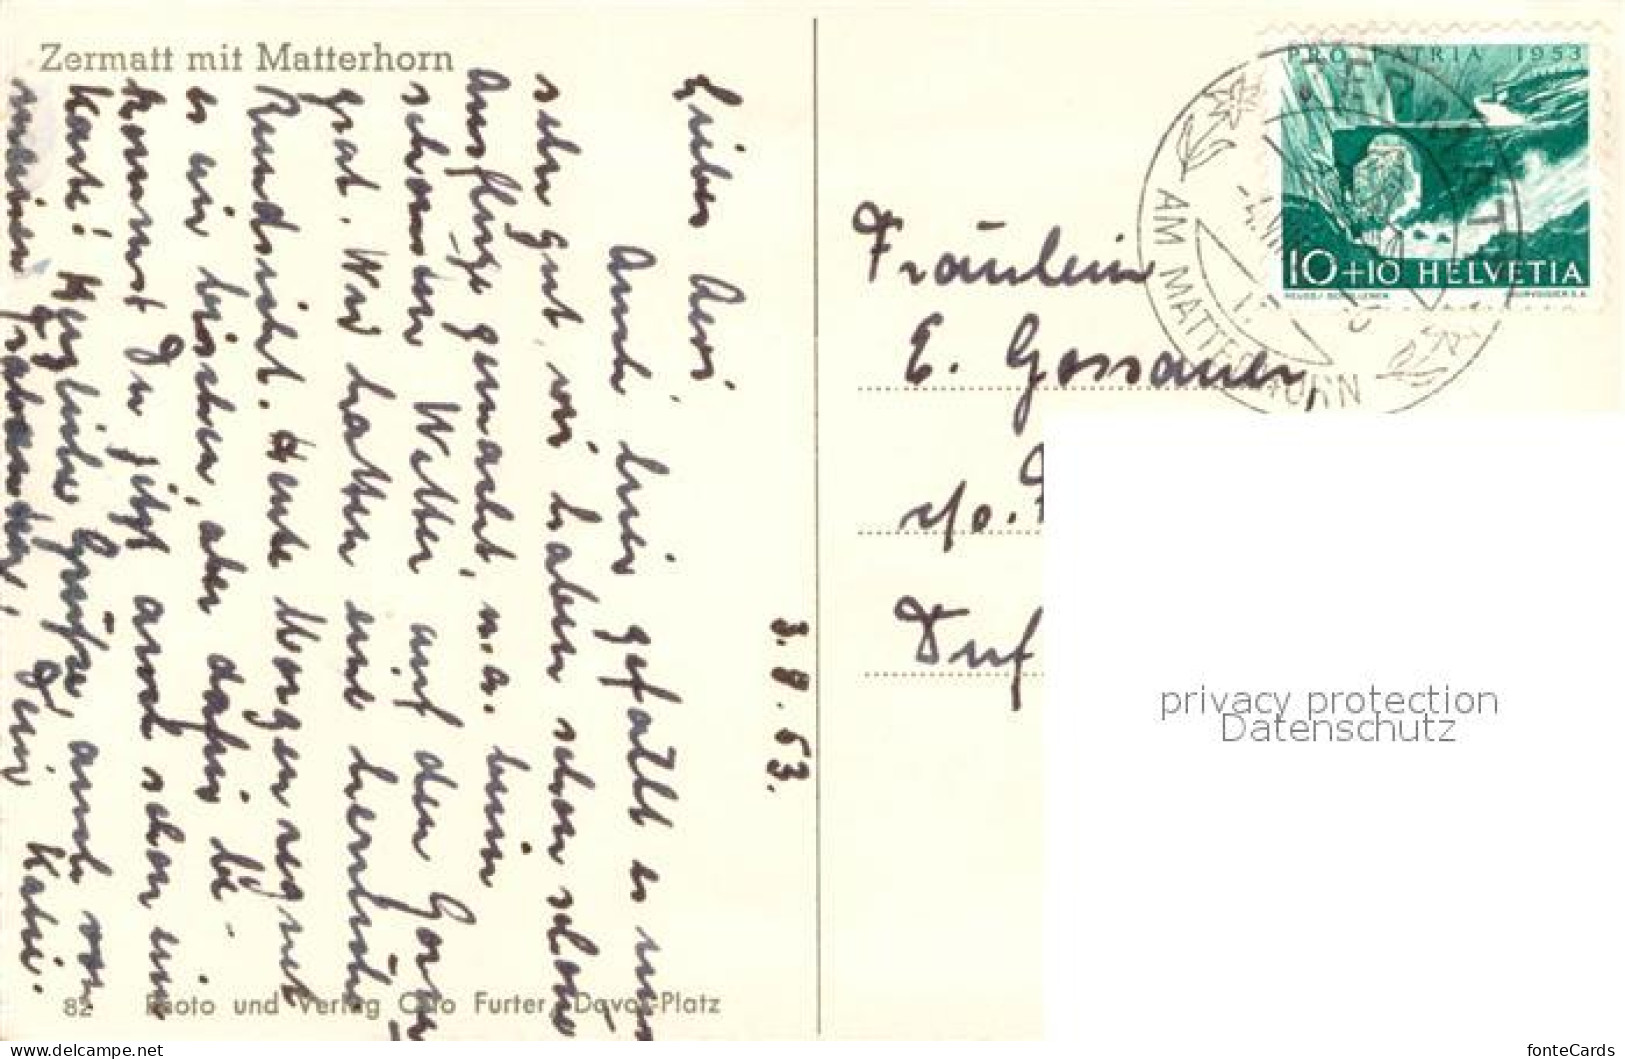 Zermatt mit Matterhorn
3. 8. 53.
Liebes Aeni
Auch hier gefallt es uns
sehr gut, wir haben schon schöne
Ausflüge gemacht, u. a. beim
schönsten Wetter auf den Gorner
grat. Wir hatten eine herrliche
Rundsicht. Heute Morgen regnet
es ein bisschen, aber dafür be-
kommst Du jetzt auch schon eine
Karte! Herzliche Grüsse, auch von
meinen
Dein Käthi.
82 Photo und Verlag Otto Furter, Davos-Platz
PRO PATRIA 1953
10+10 HELVETIA
ZERMATT
AM MATTERHORN
Fräulein
E. Gossauer
c/o.
Duf
privacy protection
Datenschutz
www.delcampe.net
fonteCards